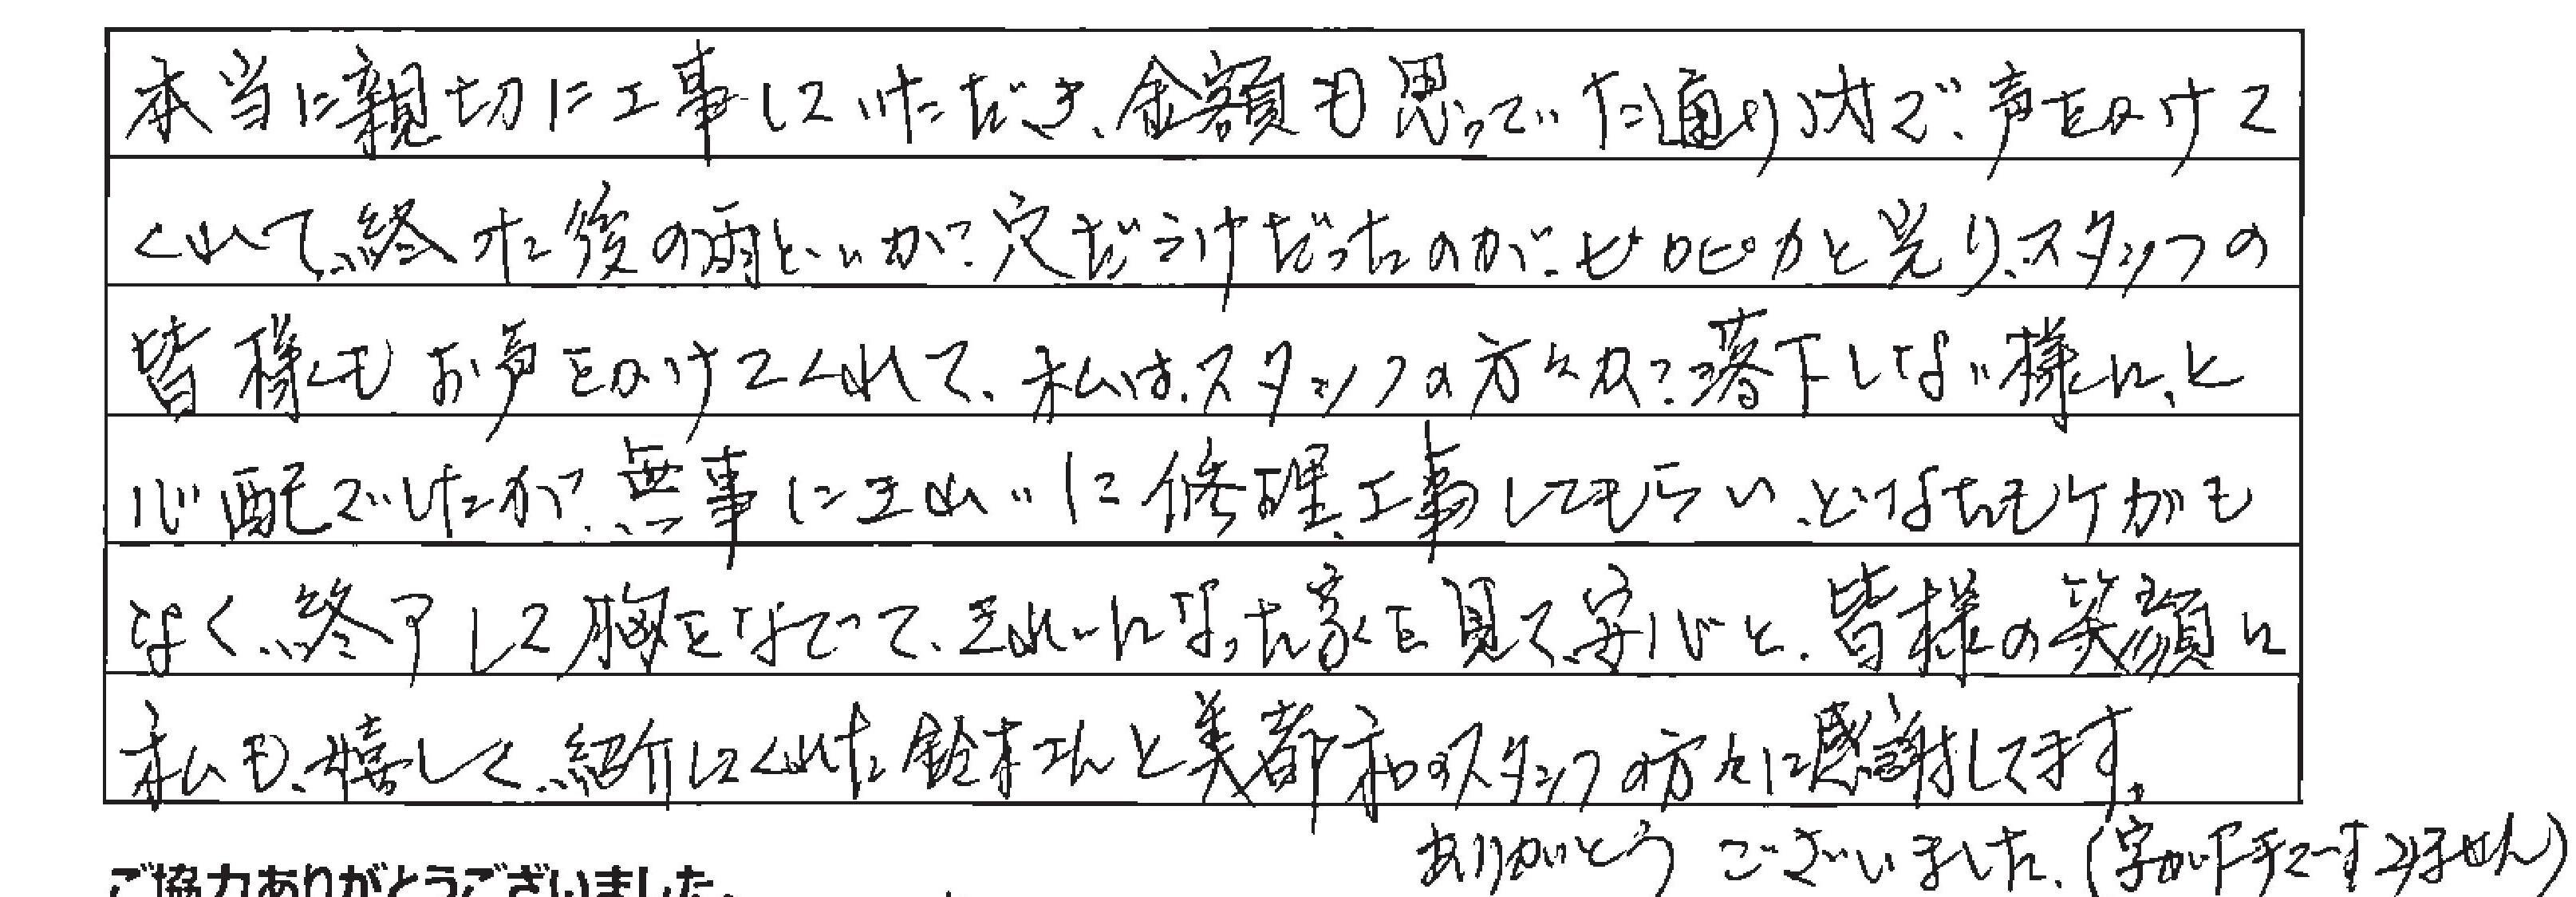 本当に親切に工事していただき、金額も思っていた通りで、声をかけて
くれて、終た後の雨といが、穴だらけだったのが、ピカピカと光り、スタッフの
皆様もお声をかけてくれて、私は、スタッフの方々が、落下しない様に、と
心配でしたが、無事にきれいに修理、工事してもらい、どなたもケガも
なく、終了して胸をなでて、きれいになった家を見て、安心と、皆様の笑顔に
私も、嬉しく、紹介してくれた鈴木さんと美都和のスタッフの方々に感謝してます。
ありがとうございました。(字が下手ですみません)
ご協力ありがとうございました。